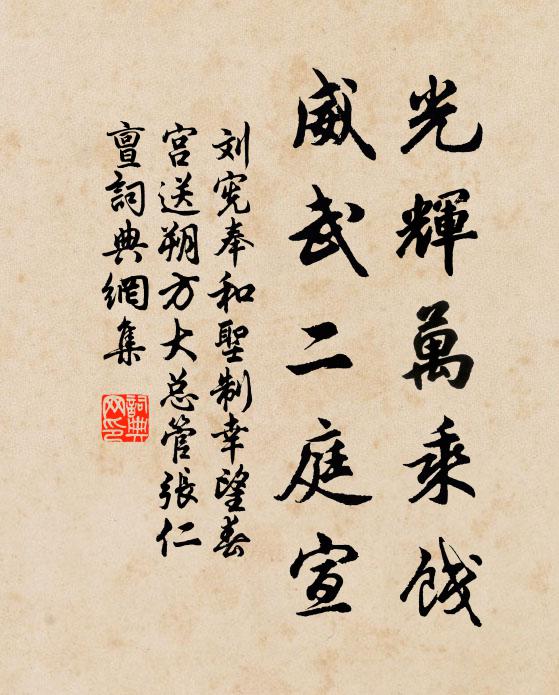 光輝萬乘餞
威武二庭宣
刘宪奉和聖制幸望春
宫送朔方大总管張仁
亶詞典網集
詞典
网印